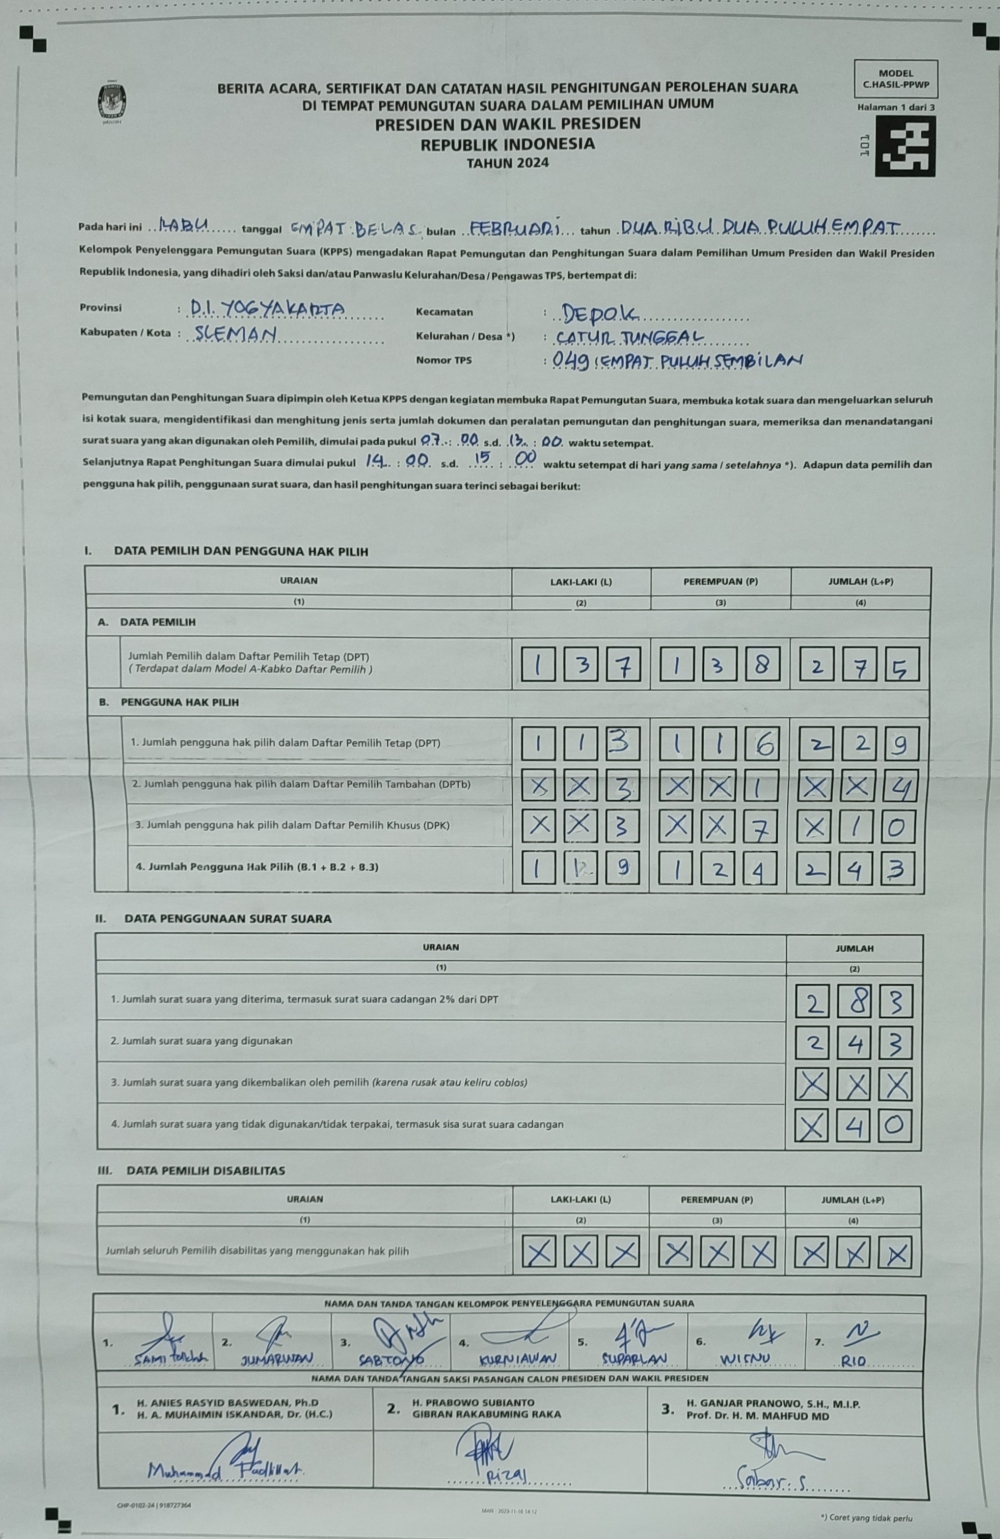 MODEL
C.HASIL-PPWP
BERITA ACARA, SERTIFIKAT DAN CATATAN HASIL PENGHITUNGAN PEROLEHAN SUARA
DI TEMPAT PEMUNGUTAN SUARA DALAM PEMILIHAN UMUM
PRESIDEN DAN WAKIL PRESIDEN
REPUBLIK INDONESIA
TAHUN 2024
Halaman 1 dari 3
101
Pada hari ini RABU tanggal EMPAT BELAS bulan FEBRUARI tahun DUA RIBU DUA PULUH EMPAT
Kelompok Penyelenggara Pemungutan Suara (KPPS) mengadakan Rapat Pemungutan dan Penghitungan Suara dalam Pemilihan Umum Presiden dan Wakil Presiden
Republik Indonesia, yang dihadiri oleh Saksi dan/atau Panwaslu Kelurahan/Desa / Pengawas TPS, bertempat di:
Provinsi : D.I. YOGYAKARTA Kecamatan : DEPOK
Kabupaten / Kota : SLEMAN Kelurahan / Desa *) : CATUR TUNGGAL
Nomor TPS : 049 (EMPAT PULUH SEMBILAN
Pemungutan dan Penghitungan Suara dipimpin oleh Ketua KPPS dengan kegiatan membuka Rapat Pemungutan Suara, membuka kotak suara dan mengeluarkan seluruh
isi kotak suara, mengidentifikasi dan menghitung jenis serta jumlah dokumen dan peralatan pemungutan dan penghitungan suara, memeriksa dan menandatangani
surat suara yang akan digunakan oleh Pemilih, dimulai pada pukul 07 : 00 s.d. 13 : 00 waktu setempat.
Selanjutnya Rapat Penghitungan Suara dimulai pukul 14 : 00 s.d. 15 : 00 waktu setempat di hari yang sama / setelahnya *). Adapun data pemilih dan
pengguna hak pilih, penggunaan surat suara, dan hasil penghitungan suara terinci sebagai berikut:
I. DATA PEMILIH DAN PENGGUNA HAK PILIH
URAIAN LAKI-LAKI (L) PEREMPUAN (P) JUMLAH (L+P)
(1) (2) (3) (4)
A. DATA PEMILIH
Jumlah Pemilih dalam Daftar Pemilih Tetap (DPT)
( Terdapat dalam Model A-Kabko Daftar Pemilih ) 1 3 7 1 3 8 2 7 5
B. PENGGUNA HAK PILIH
1. Jumlah pengguna hak pilih dalam Daftar Pemilih Tetap (DPT) 1 1 3 1 1 6 2 2 9
2. Jumlah pengguna hak pilih dalam Daftar Pemilih Tambahan (DPTb) X X 3 X X 1 X X 4
3. Jumlah pengguna hak pilih dalam Daftar Pemilih Khusus (DPK) X X 3 X X 7 X 1 0
4. Jumlah Pengguna Hak Pilih (B.1 + B.2 + B.3) 1 1 9 1 2 4 2 4 3
II. DATA PENGGUNAAN SURAT SUARA
URAIAN JUMLAH
(1) (2)
1. Jumlah surat suara yang diterima, termasuk surat suara cadangan 2% dari DPT 2 8 3
2. Jumlah surat suara yang digunakan 2 4 3
3. Jumlah surat suara yang dikembalikan oleh pemilih (karena rusak atau keliru coblos) X X X
4. Jumlah surat suara yang tidak digunakan/tidak terpakai, termasuk sisa surat suara cadangan X 4 0
III. DATA PEMILIH DISABILITAS
URAIAN LAKI-LAKI (L) PEREMPUAN (P) JUMLAH (L+P)
(1) (2) (3) (4)
Jumlah seluruh Pemilih disabilitas yang menggunakan hak pilih X X X X X X X X X
NAMA DAN TANDA TANGAN KELOMPOK PENYELENGGARA PEMUNGUTAN SUARA
1. 2. 3. 4. 5. 6. 7.
SAMI JUMARWAN SABTONO KURNIAWAN SUPARLAN WISNU RIO
NAMA DAN TANDA TANGAN SAKSI PASANGAN CALON PRESIDEN DAN WAKIL PRESIDEN
1. H. ANIES RASYID BASWEDAN, Ph.D
H. A. MUHAIMIN ISKANDAR, Dr. (H.C.)
2. H. PRABOWO SUBIANTO
GIBRAN RAKABUMING RAKA
3. H. GANJAR PRANOWO, S.H., M.I.P.
Prof. Dr. H. M. MAHFUD MD
Muhammad Rizal Sabar. S
CHP-0102-34 | 918727364
*) Coret yang tidak perlu